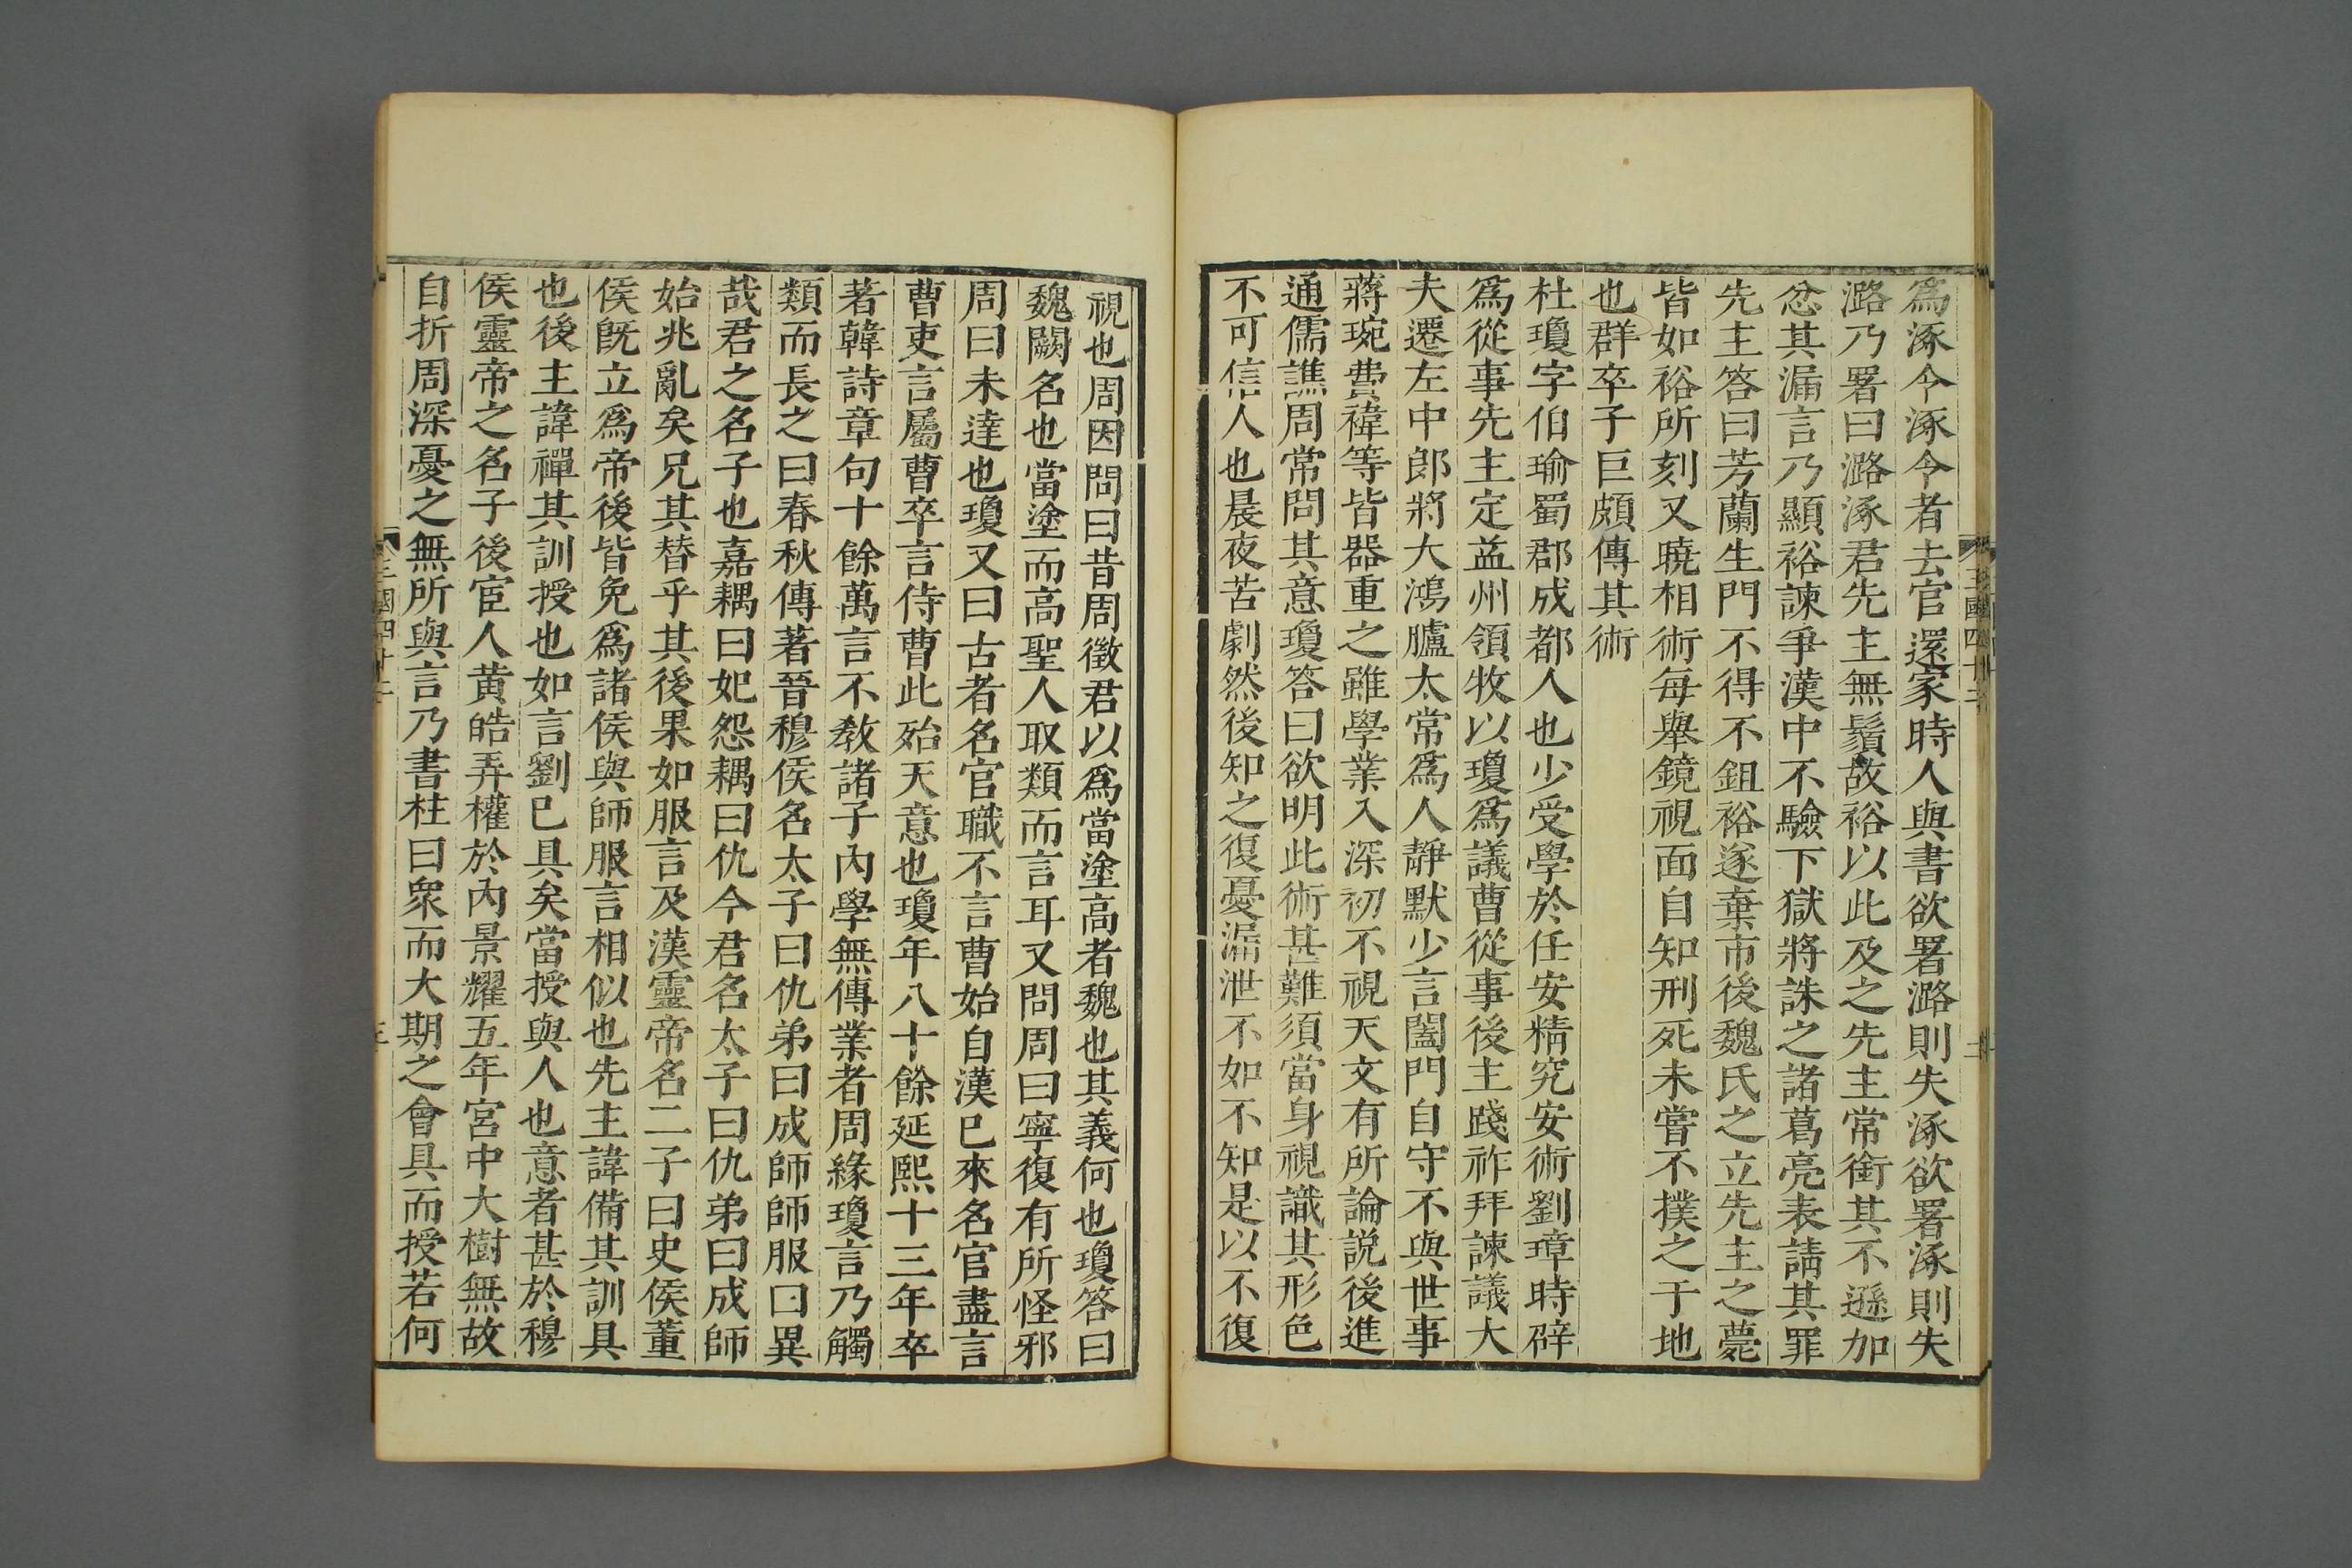 爲涿令涿令者去官還家時人與書欲署潞則失涿欲署涿則失
潞乃署曰潞涿君先主無鬚故裕以此及之先主常銜其不遜加
忿其漏言乃顯裕諫爭漢中不驗下獄將誅之諸葛亮表請其罪
先主答曰芳蘭生門不得不鉏裕遂棄市後魏氏之立先主之薨
皆如裕所刻又曉相術每舉鏡視面自知刑死未嘗不撲之于地
也群卒子巨頗傳其術
杜瓊字伯瑜蜀郡成都人也少受學於任安精究安術劉璋時辟
爲從事先主定益州領牧以瓊爲議曹從事後主踐祚拜諫議大
夫遷左中郎將大鴻臚太常爲人靜默少言闔門自守不與世事
蔣琬費禕等皆器重之雖學業入深初不視天文有所論説後進
通儒譙周常問其意瓊答曰欲明此術甚難須當身視識其形色
不可信人也晨夜苦劇然後知之復憂漏泄不如不知是以不復
視也周因問曰昔周徵君以爲當塗高者魏也其義何也瓊答曰
魏闕名也當塗而高聖人取類而言耳又問周曰寧復有所怪邪
周曰未達也瓊又曰古者名官職不言曹始自漢已來名官盡言
曹吏言屬曹卒言侍曹此殆天意也瓊年八十餘延熙十三年卒
著韓詩章句十餘萬言不敎諸子內學無傳業者周緣瓊言乃觸
類而長之曰春秋傳著晉穆侯名太子曰仇弟曰成師師服曰異
哉君之名子也嘉耦曰妃怨耦曰仇今君名太子曰仇弟曰成師
始兆亂矣兄其替乎其後果如服言及漢靈帝名二子曰史侯董
侯旣立爲帝後皆免爲諸侯與師服言相似也先主諱備其訓具
也後主諱禪其訓授也如言劉已具矣當授與人也意者甚於穆
侯靈帝之名子後宦人黄皓弄權於內景耀五年宮中大樹無故
自折周深憂之無所與言乃書柱曰衆而大期之會具而授若何